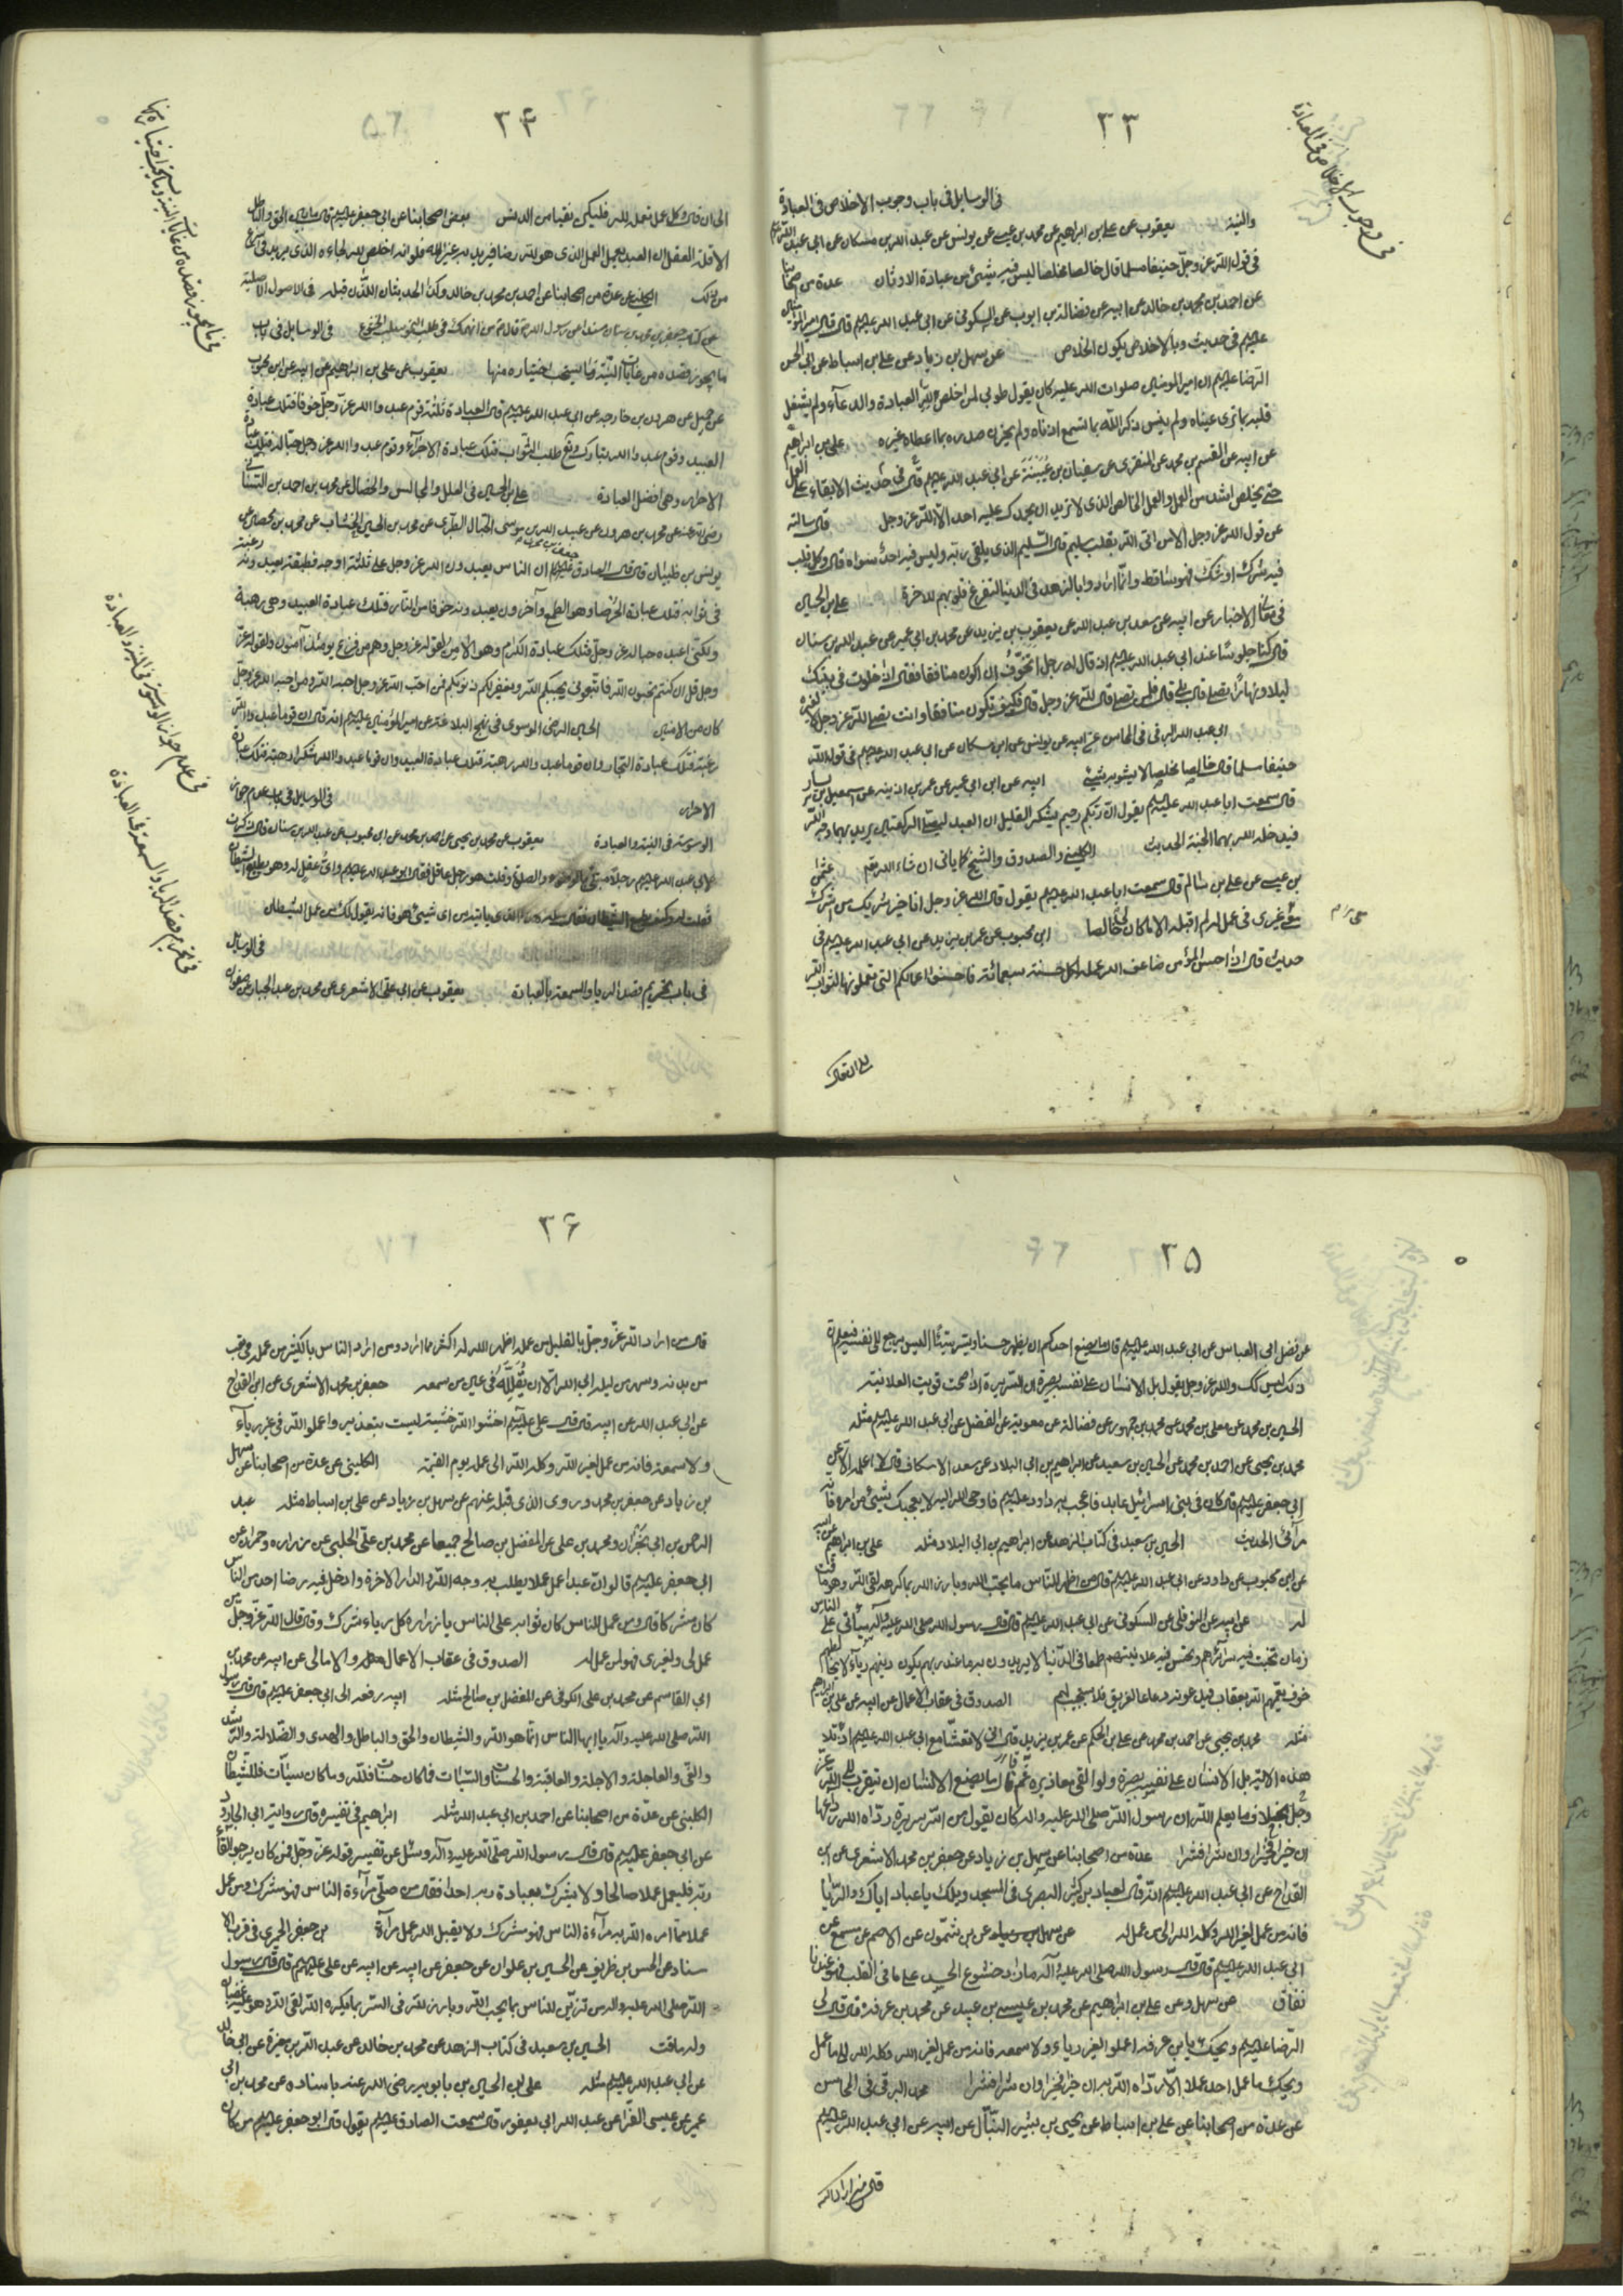 ٣٣
في وجوب الاخلاص في العبادة
في الوسايل في باب وجوب الاخلاص في العبادة
والنية يعقوب عن علي بن ابراهيم عن محمد بن عيسى عن يونس عن عبد الله بن مسكان عن ابي عبد الله
في قول الله عز وجل حنيفا مسلما قال خالصا مخلصا ليس فيه شيئ من عبادة الاوثان عدة من اصحابنا
عن احمد بن محمد بن خالد عن ابيه عن فضالة بن ايوب عن السكوني عن ابي عبد الله عليهم قال قال امير المؤمنين
عليهم في حديث وبالاخلاص يكون الخلاص عن سهل بن زياد عن علي بن اسباط عن ابي الحسن
الرضا عليهم ان امير المؤمنين صلوات الله عليه كان يقول طوبى لمن اخلص لله العبادة والدعآء ولم يشغل
قلبه بما ترى عيناه ولم ينس ذكر الله بما تسمع اذناه ولم يحزن صدره بما اعطاه غيره علي بن ابراهيم
عن ابيه عن القسم بن محمد عن المنقري عن سفيان بن عيينة عن ابي عبد الله عليهم في حديث الابقاء على العمل
حتى يخلص اشد من العمل والعمل الخالص الذي لا تريد ان يحمدك عليه احد الا الله عز وجل قال سالته
عن قول الله عز وجل الا من اتى الله بقلب سليم قال السليم الذي يلقى ربه وليس فيه احد سواه قال وكل قلب
فيه شرك او شك فهو ساقط وانما ارادوا بالزهد في الدنيا لتفرغ قلوبهم للاخرة علي بن الحسين
في معاني الاخبار عن ابيه عن سعد بن عبد الله عن يعقوب بن يزيد عن محمد بن ابي عمير عن عبد الله بن سنان
قال كنا جلوسا عند ابي عبد الله عليهم اذ قال له رجل اتخوف ان اكون منافقا فقال اذا خلوت في بيتك
ليلا ونهارا تصلي قال بلى قال فلمن تصلي قال لله عز وجل قال فكيف تكون منافقا وانت تصلي لله عز وجل لا لغيره
ابي عبد الله البرقي في المحاسن عن ابيه عن يونس عن ابن مسكان عن ابي عبد الله عليهم في قول الله
حنيفا مسلما قال خالصا مخلصا لا يشوبه شيئ ابيه عن ابن ابي عمير عن عمر بن اذينه عن اسمعيل بن يسار
قال سمعت ابا عبد الله عليهم يقول ان ربكم رحيم يشكر القليل ان العبد ليصلي الركعتين يريد بهما وجه الله
فيدخله الله بهما الجنة الحديث الكليني والصدوق والشيخ كما ياتي ان شاء الله عثمن
بن عيسى عن علي بن سالم قال سمعت ابا عبد الله عليهم يقول قال الله عز وجل انا خير شريك من اشرك
معي غيري في عمل لم اقبله الا ما كان لي خالصا ابن محبوب عن عمر بن يزيد عن ابي عبد الله عليهم في
حديث قال اذا احسن المؤمن ضاعف الله عمله لكل حسنة سبعمائة فاحسنوا اعمالكم التي تعملونها لثواب الله
٣۴
الى ان قال وكل عمل تعمله لله فليكن نقيا من الدنس بعض اصحابنا عن ابي جعفر عليهم قال ما بين الحق والباطل
الا قلة العقل ان العبد يعمل العمل الذي هو لله رضا فيريد به غير الله فلو انه اخلص لله لجاءه الذي يريد في اسرع
من ذلك الكليني عن عدة من اصحابنا عن احمد بن محمد بن خالد وكذا الحديثان اللذان قبله
ما يجوز قصده من غايات النية وما يستحب اختياره منها يعقوب عن علي بن ابراهيم عن ابيه عن ابن محبوب
عن جميل عن هرون بن خارجه عن ابي عبد الله عليهم قال العبادة ثلثة قوم عبدوا الله عز وجل خوفا فتلك عبادة
العبيد وقوم عبدوا الله تبارك وتع طلب الثواب فتلك عبادة الاجرآء وقوم عبدوا الله عز وجل حبا له فتلك عبادة
الاحرار وهي افضل العبادة علي بن الحسين في العلل والمجالس والخصال عن محمد بن احمد بن السناني
يونس بن ظبيان قال قال الصادق عليهم ان الناس يعبدون الله عز وجل على ثلثة اوجه فطبقة يعبدونه رغبة
في ثوابه فتلك عبادة الحرصا وهو الطمع وآخرون يعبدونه خوفا من النار فتلك عبادة العبيد وهي رهبة
ولكني اعبده حبا له عز وجل فتلك عبادة الكرام وهو الامن لقوله عز وجل وهم من فزع يومئذ آمنون ولقوله عز
وجل قل ان كنتم تحبون الله فاتبعوني يحببكم الله ويغفر لكم ذنوبكم فمن احب الله عز وجل احبه الله ومن احبه الله عز وجل
كان من الامنين الحسين الرضي الموسوي في نهج البلاغة عن امير المؤمنين عليهم انه قال ان قوما عبدوا الله
رغبة فتلك عبادة التجار وان قوما عبدوا الله رهبة فتلك عبادة العبيد وان قوما عبدوا الله شكرا فتلك عبادة
الاحرار في الوسايل في باب عدم جواز
الوسوسة في النية والعبادة يعقوب عن محمد بن يحيى عن احمد بن محمد عن ابن محبوب عن عبد الله بن سنان قال ذكرت
لابي عبد الله عليهم رجلا مبتلى بالوضوء والصلوة وقلت هو رجل عاقل فقال ابو عبد الله عليهم واي عقل له وهو يطيع الشيطان
فقلت له وكيف يطيع الشيطان فقال سله هذا الذي ياتيه من اي شيئ هو فانه يقول لك من عمل الشيطان
في الوسايل
في باب تحريم قصد الريا والسمعة بالعبادة يعقوب عن ابي علي الاشعري عن محمد بن عبد الجبار عن صفوان
في عدم جواز الوسوسة في النية والعبادة
في تحريم قصد الريا والسمعة في العبادة
٣۵
عن فضل ابي العباس عن ابي عبد الله عليهم قال ما يصنع احدكم ان يظهر حسنا ويسر سيئا اليس يرجع الى نفسه فيعلم ان
ذلك ليس كك والله عز وجل يقول بل الانسان على نفسه بصيرة ان السريرة اذا صحت قويت العلانية
الحسين بن محمد عن معلى بن محمد عن محمد بن جمهور عن فضالة عن معوية عن الفضل عن ابي عبد الله عليهم مثله
محمد بن يحيى عن احمد بن محمد عن الحسين بن سعيد عن ابراهيم بن ابي البلاد عن سعد الاسكاف قال لا اعلمه الا عن
ابي جعفر عليهم قال كان في بني اسرائيل عابد فاعجب به داود عليهم فاوحى الله اليه لا يعجبك شيئ من امره فانه
مرآئي الحديث الحسين بن سعيد في كتاب الزهد عن ابراهيم بن ابي البلاد مثله علي بن ابراهيم عن ابيه
عن ابن محبوب عن داود عن ابي عبد الله عليهم قال من اظهر للناس ما يحب الله وبارز الله بما كرهه لقى الله وهو ماقت
له عن ابيه عن النوفلي عن السكوني عن ابي عبد الله عليهم قال قال رسول الله صلى الله عليه وآله سيأتي على الناس
زمان تخبث فيه سرائرهم وتحسن فيه علانيتهم طمعا في الدنيا لا يريدون به ما عند ربهم يكون دينهم رياء لا يخالطهم
خوف يعمهم الله بعقاب فيدعونه دعاء الغريق فلا يستجيب لهم الصدوق في عقاب الاعمال عن ابيه عن علي بن ابراهيم
مثله محمد بن يحيى عن احمد بن محمد عن علي بن الحكم عن عمر بن يزيد قال اني لاتعشا مع ابي عبد الله عليهم اذ تلا
هذه الاية بل الانسان على نفسه بصيرة ولو القى معاذيره ثم قال ما يصنع الانسان ان يتقرب الى الله عز
وجل بخلاف ما يعلم الله ان رسول الله صلى الله عليه وآله كان يقول من اسر سريرة رداه الله رداءها
ان خيرا فخيرا وان شرا فشرا عدة من اصحابنا عن سهل بن زياد عن جعفر بن محمد الاشعري عن ابن
القداح عن ابي عبد الله عليهم انه قال لعباد بن كثير البصري في المسجد ويلك يا عباد اياك والريا
فانه من عمل لغير الله وكله الله الى من عمل له عن سهل عن بن شمون عن الاصم عن مسمع عن
ابي عبد الله عليهم قال قال رسول الله صلى الله عليه وآله ما زاد خشوع الجسد على ما في القلب فهو عندنا
نفاق عن سهل وعن علي بن ابراهيم عن محمد بن عيسى بن عبيد عن محمد بن عرفة قال قال لي
الرضا عليهم ويحك يا بن عرفه اعملوا لغير رياء ولا سمعه فانه من عمل لغير الله وكله الله الى ما عمل
ويحك ما عمل احد عملا الا رداه الله به ان خيرا فخيرا وان شرا فشرا محمد البرقي في المحاسن
عن عدة من اصحابنا عن علي بن اسباط عن يحيى بن بشير النبال عن ابيه عن ابي عبد الله عليهم
٣۶
قال من اراد الله عز وجل بالقليل من عمله اظهر الله له اكثر مما اراد ومن اراد الناس بالكثير من عمله في تعب
من بدنه وسهر من ليله ابى الله الا ان يقلله في عين من سمعه جعفر بن محمد الاشعري عن ابن القداح
عن ابي عبد الله عن ابيه قال قال علي عليهم اخشوا الله خشية ليست بتعذير واعملوا لله في غير رياء
ولا سمعة فانه من عمل لغير الله وكله الله الى عمله يوم القيمة الكليني عن عدة من اصحابنا عن سهل
بن زياد عن جعفر بن محمد وروى الذي قبله عنهم عن سهل بن زياد عن علي بن اسباط مثله عبد
الرحمن بن ابي نجران ومحمد بن علي عن المفضل بن صالح جميعا عن محمد بن علي الحلبي عن زراره وحمران عن
ابي جعفر عليهم قالا لو ان عبدا عمل عملا يطلب به وجه الله والدار الاخرة وادخل فيه رضا احد من الناس
كان مشركا قال ومن عمل للناس كان ثوابه على الناس يا زراره كل رياء شرك وقال قال الله عز وجل من
عمل لي ولغيري فهو لمن عمل له الصدوق في عقاب الاعمال والامالي عن ابيه عن محمد بن
ابي القاسم عن محمد بن علي الكوفي عن المفضل بن صالح مثله ابيه رفعه الى ابي جعفر عليهم قال قال رسول
الله صلى الله عليه وآله يا ايها الناس انما هو الله والشيطان والحق والباطل والهدى والضلالة والرشد
والغي والعاجلة والاجلة والعاقبة والحسنات والسيئات فما كان حسنات فلله وما كان سيئات فللشيطان
الكليني عن عدة من اصحابنا عن احمد بن ابي عبد الله مثله ابراهيم في تفسيره قال رواية ابي الجارود
عن ابي جعفر عليهم قال قال رسول الله صلى الله عليه وآله وسئل عن تفسير قوله عز وجل فمن كان يرجو لقاء
ربه فليعمل عملا صالحا ولا يشرك بعبادة ربه احدا فقال من صلى مرآءة الناس فهو مشرك ومن عمل
عملا مما امره الله به مرآءة الناس فهو مشرك ولا يقبل الله عمل مرآة بن جعفر الحميري في قرب الا
سناد عن الحسن بن ظريف عن الحسين بن علوان عن جعفر عن ابيه عن ابيه عن علي عليهم قال قال رسول
الله صلى الله عليه وآله من تزين للناس بما يحب الله وبارز لله في السر بما يكره الله لقى الله وهو عليه غضبان
وله ماقت الحسين بن سعيد في كتاب الزهد عن محمد بن خالد عن عبد الله بن مغيرة عن ابي خالد
عن ابي عبد الله عليهم مثله علي بن الحسين بن بابويه رضي الله عنه باسناده عن محمد بن ابي
عمير عن عيسى الفرا عن عبد الله ابي يعفور قال سمعت الصادق عليهم يقول قال ابو جعفر عليهم من كان